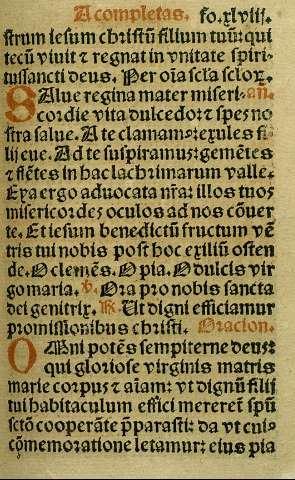 A completas. fo.xlviij.
strum iesum christũ filium tuũ: qui
tecũ viuit ⁊ regnat in vnitate spiri⸗
tussancti deus. Per oĩa scl̃a scloꝝ.
SAlue regina mater miseri⸗ an̄.
cordie vita dulcedo: ⁊ spes no
stra salue. A te clamamꝰ: exules fi⸗
lij eue. Ad te suspiramus: gemẽtes
⁊ flẽtes in hac lachrimarum valle.
Eya ergo aduocata nr̃a: illos tuos
misericordes oculos ad nos cõuer
te. Et iesum benedictũ fructum vẽ
tris tui nobis post hoc exiliũ osten
de. O clemẽs. O pia. O dulcis vir
go maria. ℣. Ora pro nobis sancta
dei genitrix. ℟. Ut digni efficiamur
promissionibus christi. Oracion.
OMni potẽs sempiterne deus:
qui gloriose virginis matris
marie corpus ⁊ aĩam: vt dignũ filij
tui habitaculum effici mereret̃ spũ
scт̃o cooperãte p̃parasti: da vt cui⸗
cõmemoratione letamur: eius pia